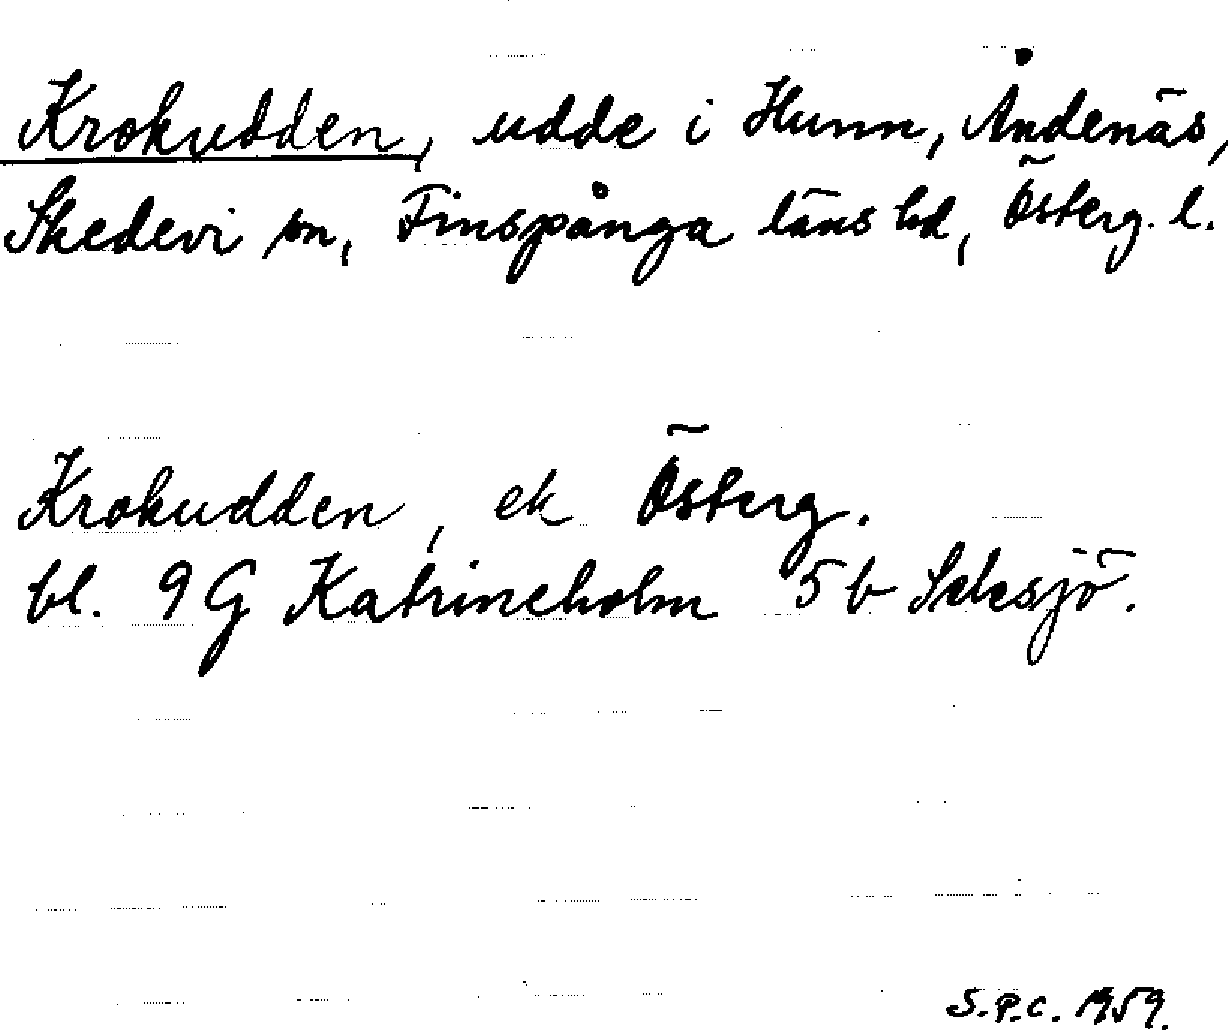 Krokudden, udde i Hunn, Åndenäs,
Skedevi sn, Finspånga läns hd, Österg. l.
Krokudden, ek Österg.
bl. 9G Katrineholm 5b
S.P.C. 1959.